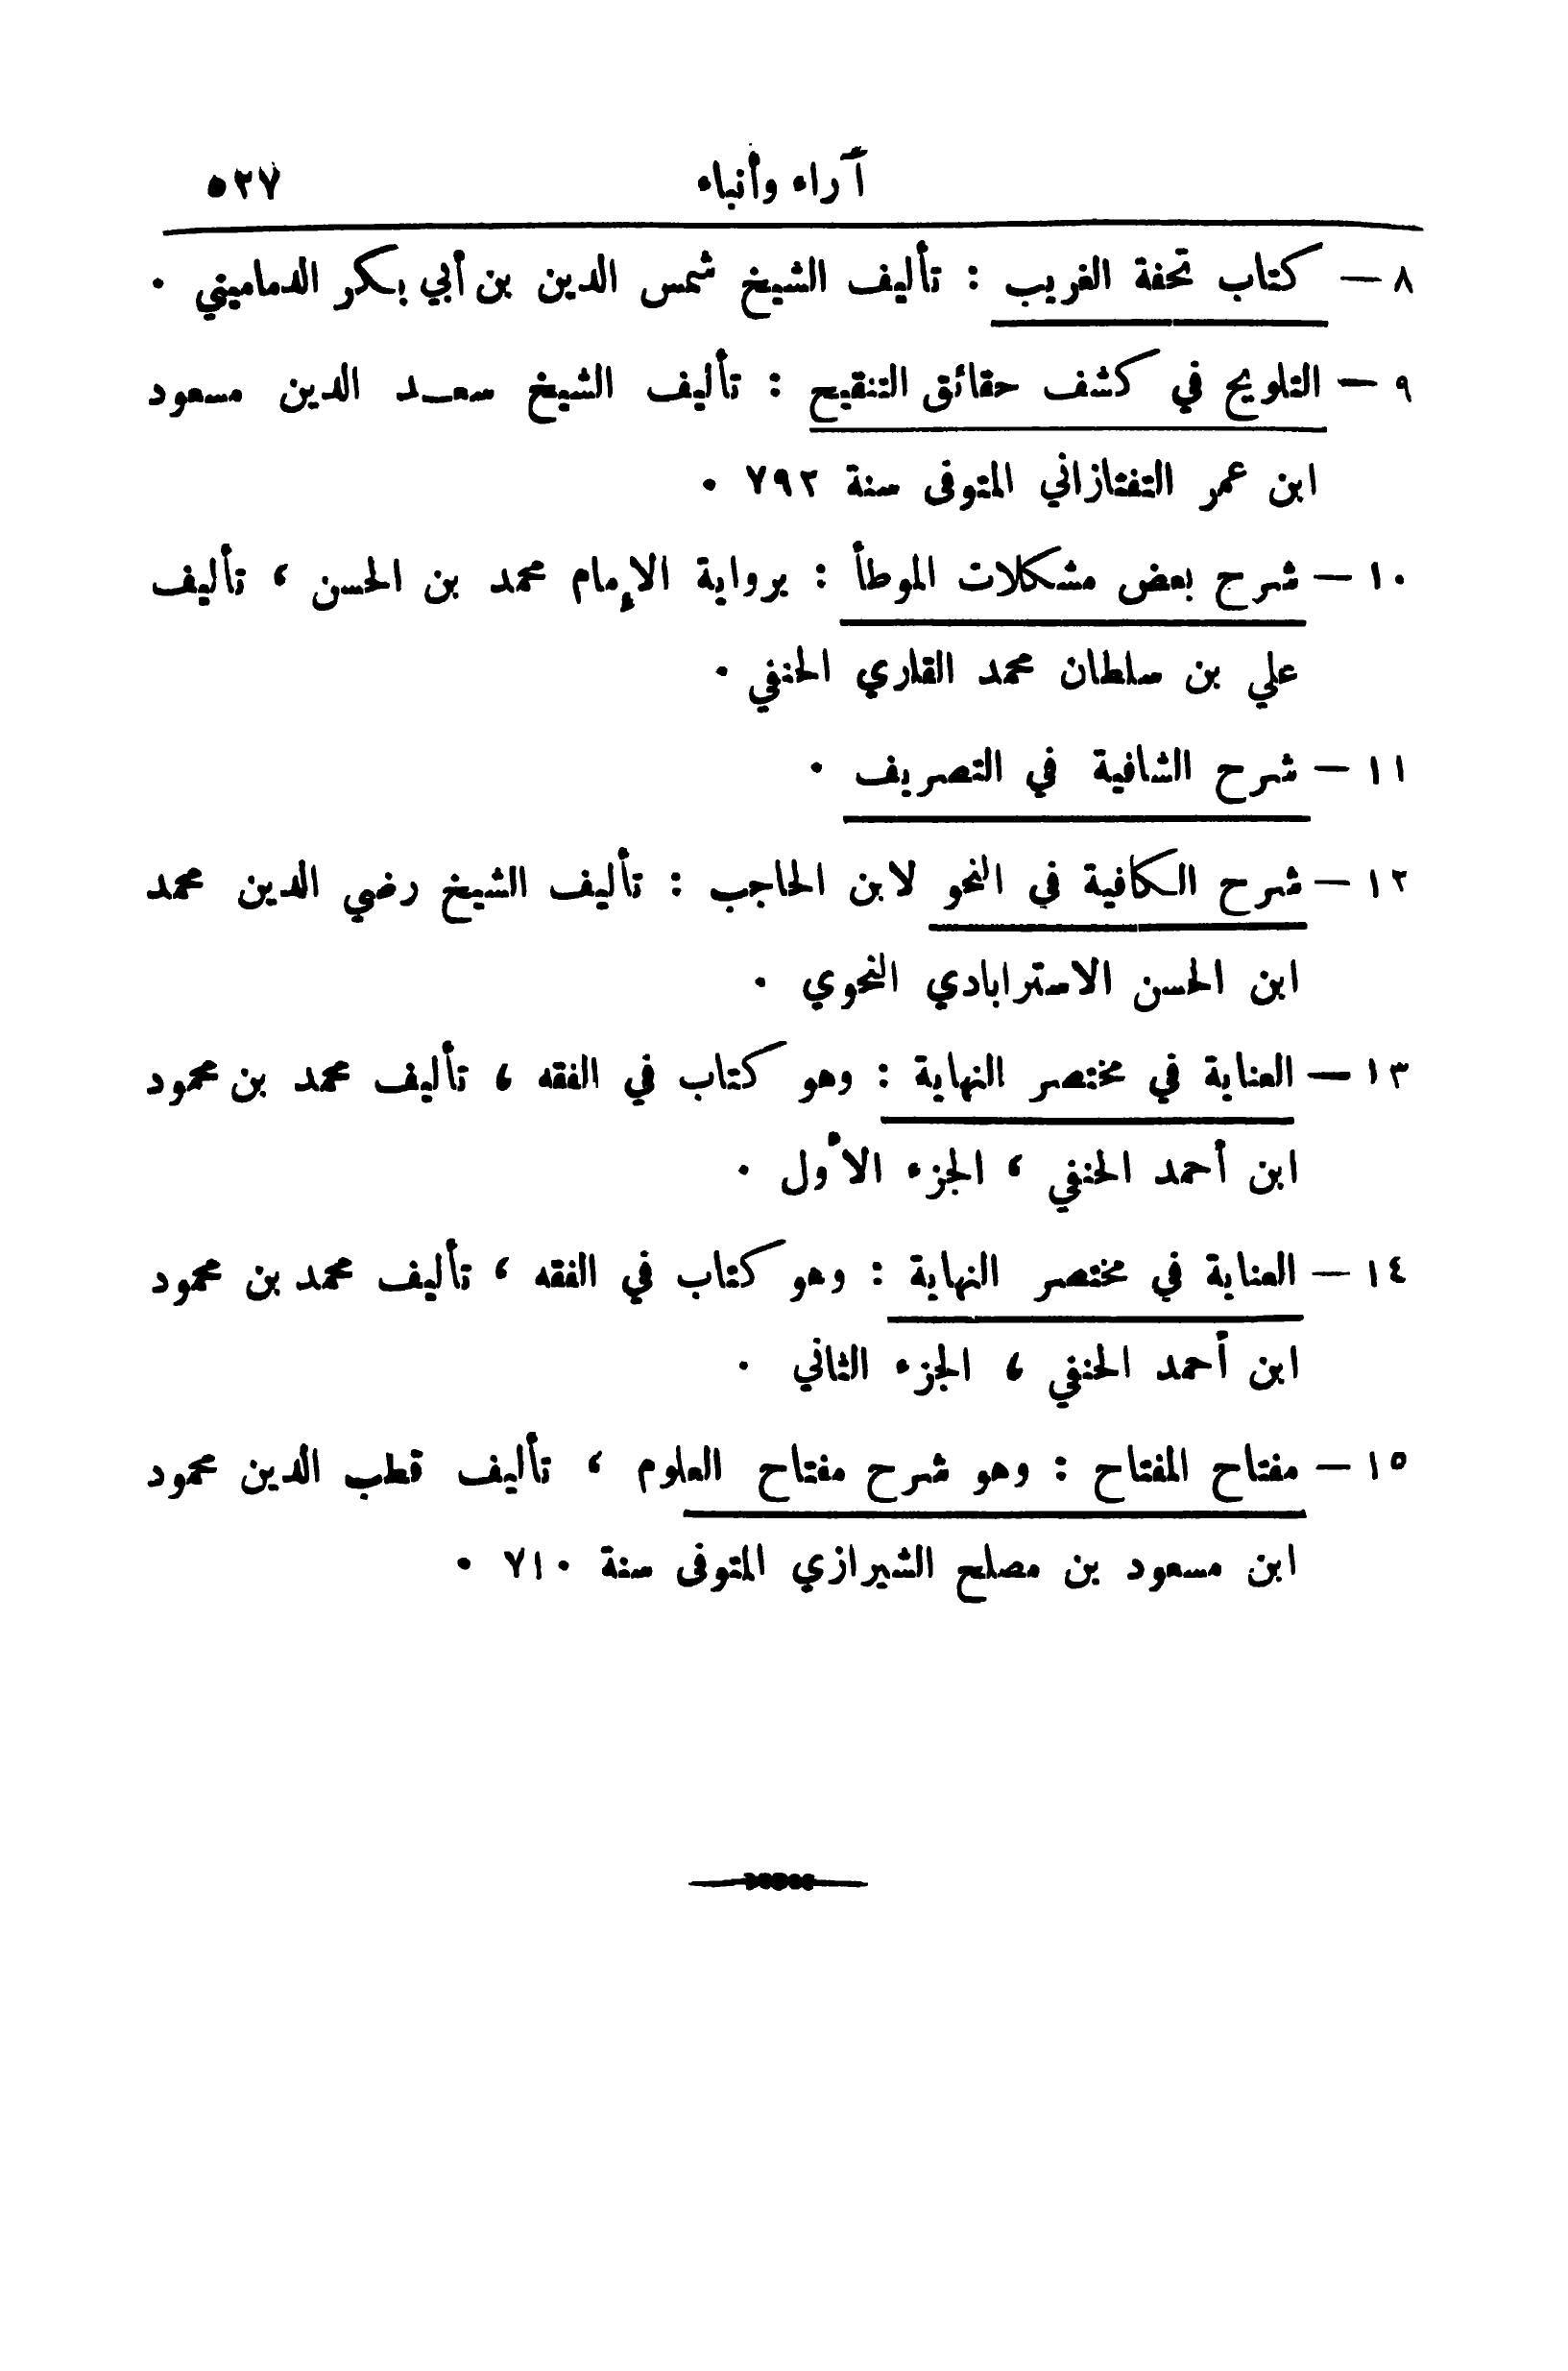 آراء وأنباء ٥٢٧
٨ — كتاب تحفة الغريب : تأليف الشيخ شمس الدين بن أبي بكر الدماميني ٠
٩ — التلويح في كشف حقائق التنقيح : تأليف الشيخ سعد الدين مسعود
ابن عمر التفتازاني المتوفى سنة ٧٩٢ ٠
١٠ — شرح بعض مشكلات الموطأ : برواية الإمام محمد بن الحسن ، تأليف
علي بن سلطان محمد القاري الحنفي ٠
١١ — شرح الشافية في التصريف ٠
١٢ — شرح الكافية في النحو لابن الحاجب : تأليف الشيخ رضي الدين محمد
ابن الحسن الاسترابادي النحوي ٠
١٣ — العناية في مختصر النهاية : وهو كتاب في الفقه ، تأليف محمد بن محمود
ابن أحمد الحنفي ، الجزء الأول ٠
١٤ — العناية في مختصر النهاية : وهو كتاب في الفقه ، تأليف محمد بن محمود
ابن أحمد الحنفي ، الجزء الثاني ٠
١٥ — مفتاح المفتاح : وهو شرح مفتاح العلوم ، تأليف قطب الدين محمود
ابن مسعود بن مصلح الشيرازي المتوفى سنة ٧١٠ ٠